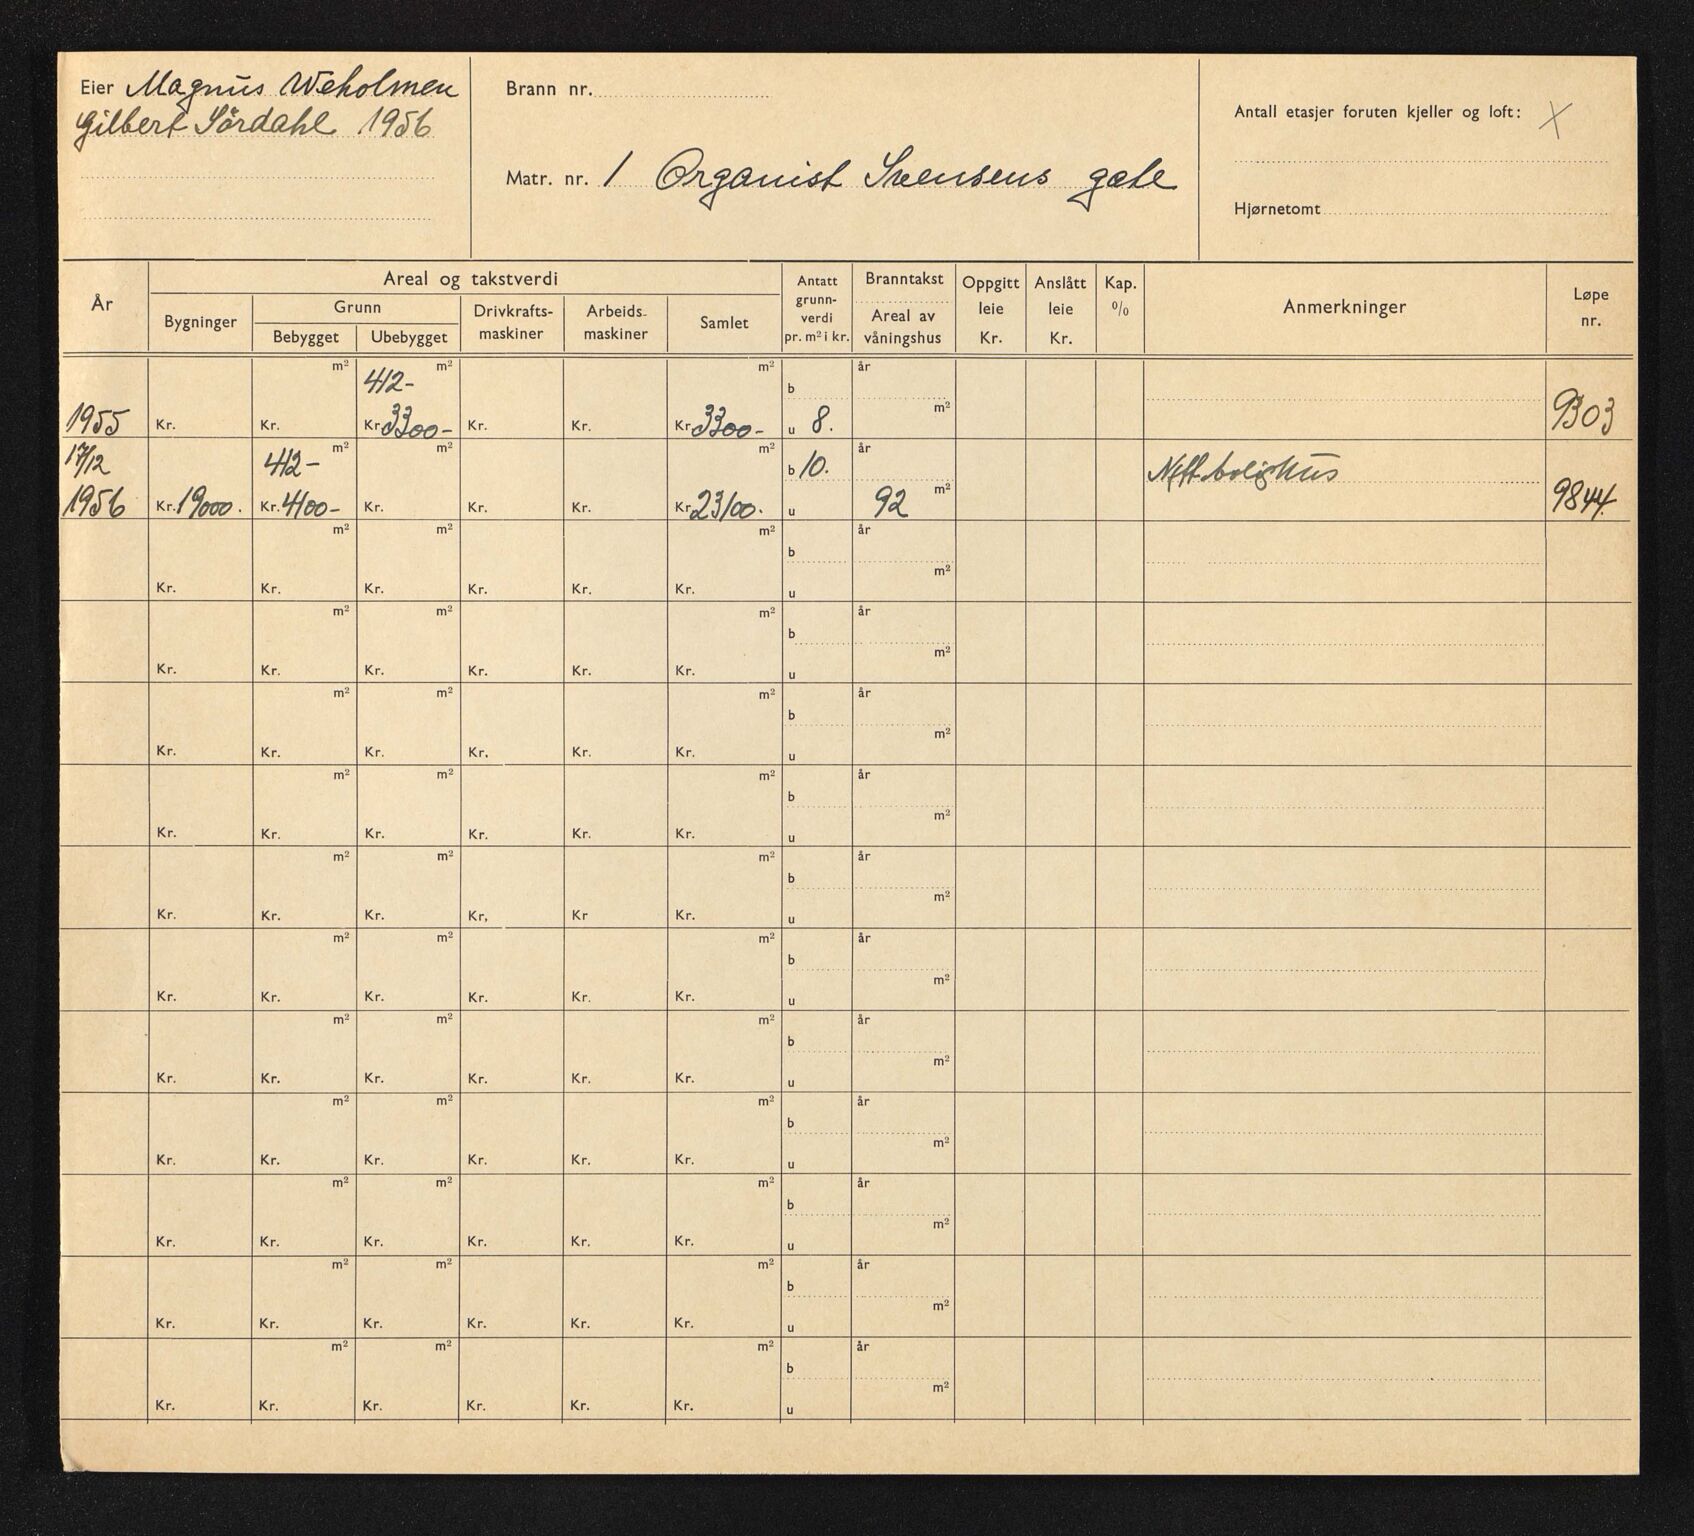 Eier Magnus Weholmen
Gilbert Sördahl 1956
Brann nr.
Matr. nr. 1 Organist Svensens gate
Antall etasjer foruten kjeller og loft: X
Hjørnetomt
År
Areal og takstverdi
Bygninger
Grunn
Bebygget
Ubebygget
Drivkrafts-
maskiner
Arbeids-
maskiner
Samlet
Antatt
grunn-
verdi
pr. m² i kr.
Branntakst
Areal av
våningshus
Oppgitt
leie
Kr.
Anslått
leie
Kr.
Kap.
%
Anmerkninger
Løpe
nr.
m² 412- m² m² b år
1955 Kr. Kr. Kr. 3300- Kr. Kr. Kr. 3300- u 8. m² 9303
17/12 412- m² m² m² b 10. år boligshus
1956 Kr. 19000. Kr. 4100- Kr. Kr. Kr. Kr. 23100. u 92 m² 9844
m² m² m² b år
Kr. Kr. Kr. Kr. Kr. Kr. u m²
m² m² m² b år
Kr. Kr. Kr. Kr. Kr. Kr. u m²
m² m² m² b år
Kr. Kr. Kr. Kr. Kr. Kr. u m²
m² m² m² b år
Kr. Kr. Kr. Kr. Kr. Kr. u m²
m² m² m² b år
Kr. Kr. Kr. Kr, Kr Kr. u m²
m² m² m² b år
Kr. Kr. Kr. Kr. Kr. Kr. u m²
m² m² m² b år
Kr. Kr. Kr. Kr. Kr. Kr. u m²
m² m² m² b år
Kr. Kr. Kr. Kr. Kr. Kr. u m²
m² m² m² b år
Kr. Kr. Kr. Kr. Kr. Kr. u m²
m² m² m² b år
Kr. Kr. Kr. Kr. Kr. Kr. u m²
m² m² m² b år
Kr. Kr. Kr. Kr. Kr. Kr. u m²